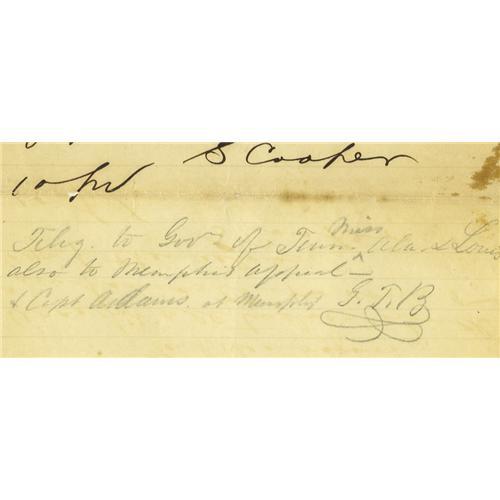 S Cooper
10 /
Miss
Teleg. to Gov of Tenn. ^ Ala. & Louis
also to Memphis Appeal -
& Capt Adams. at Memphis G. T. B